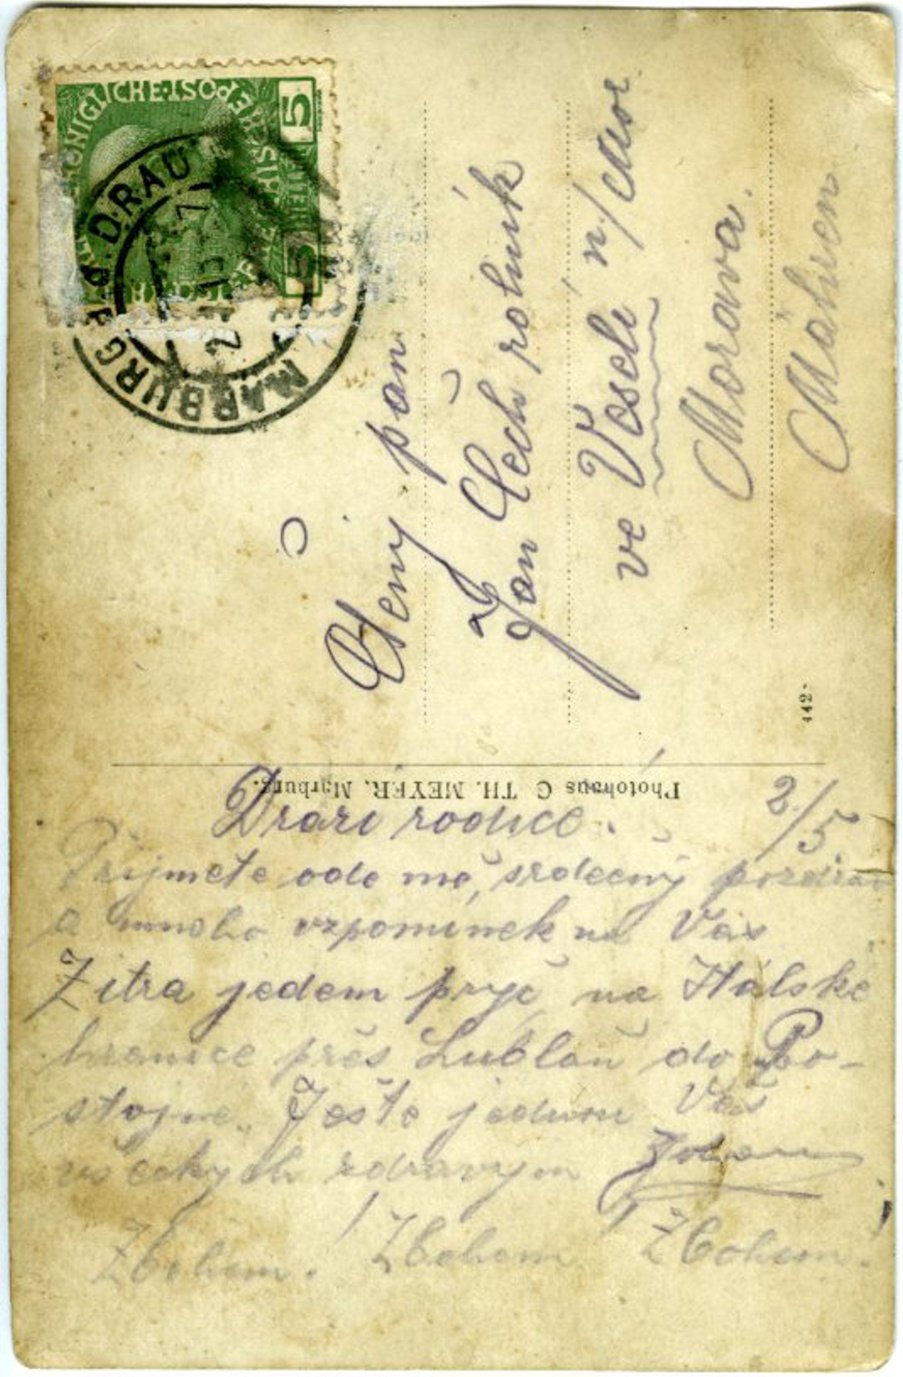 5
5
MARBURG
DRAU
Ctený pán
Jan Čech rolník
ve Veselí n/Mor
Morava.
Mähren
442
Photohaus C. TH. MEYER, Marburg.
2/5
Drazí rodiče.
Přijmete ode mě, srdečný pozdrav
a mnoho vzpomínek na Vás
Zitra jedem pryč na Italské
hranice přes Lublaň do Po-
stojné. Ještě jednou Vaš
všeckých zdravým
Zbohem! Zbohem! Zbohem!